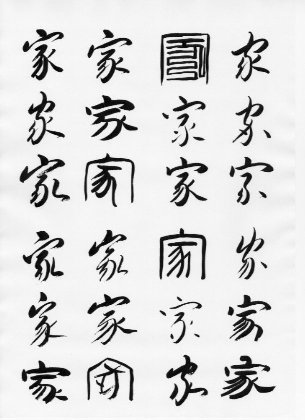 家 家 家
家 家 家 家
家 家 家 家
家 家 家 家
家 家 家 家
家 家 家